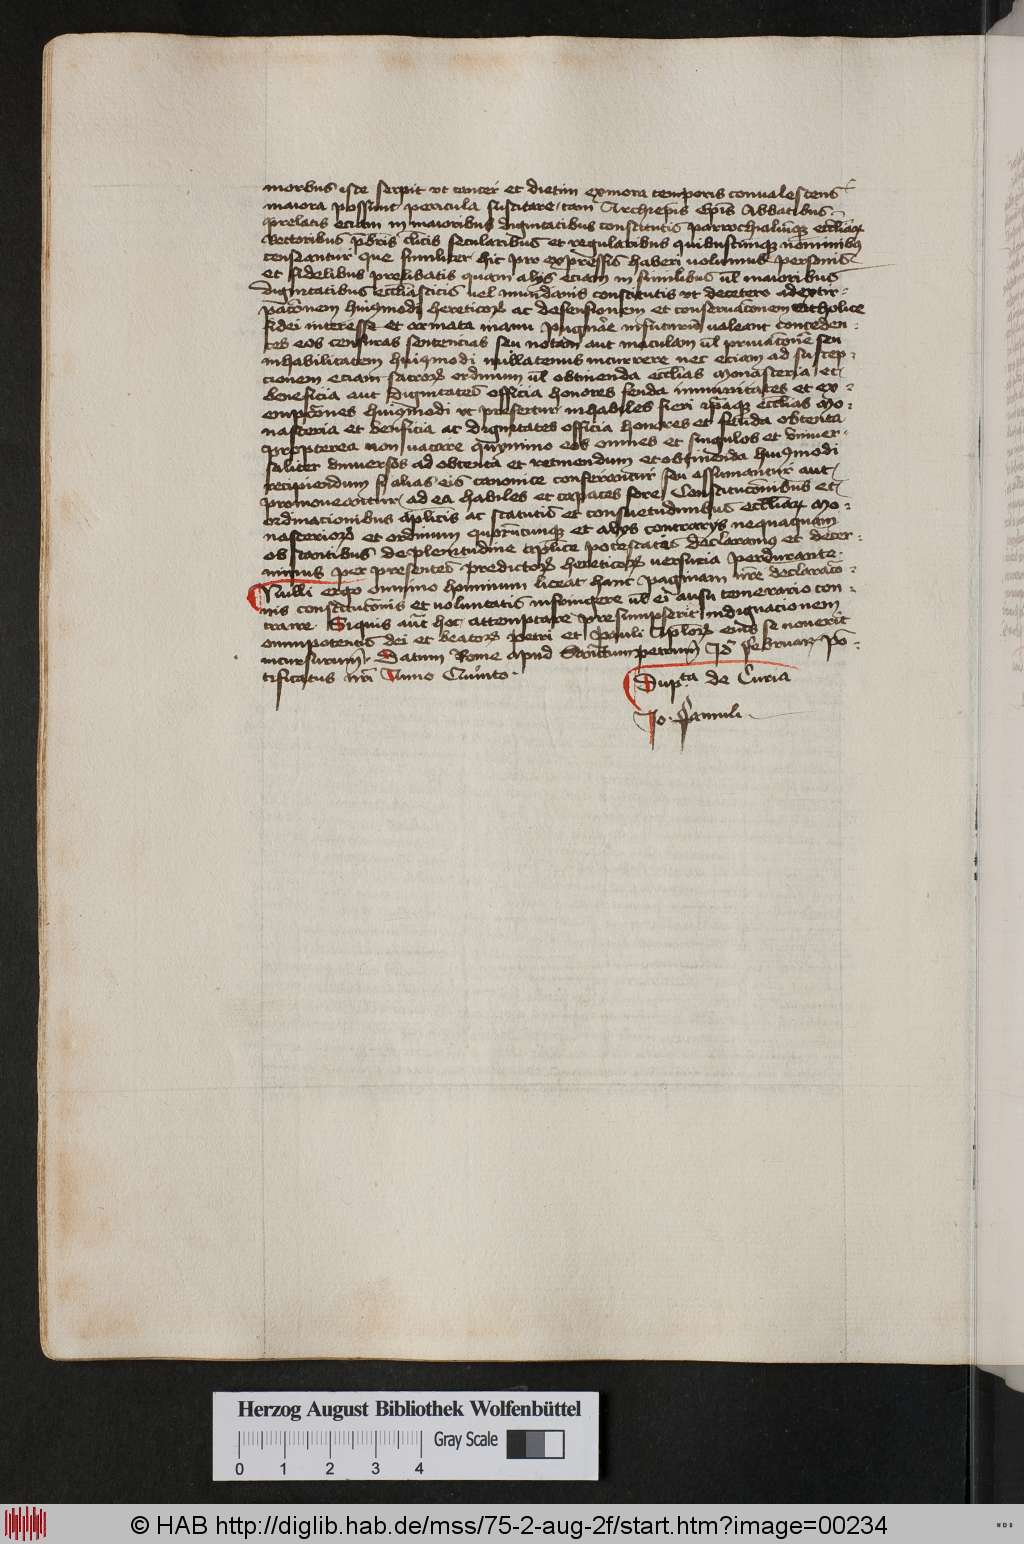 morbus iste serpit vt cancer et dietim ex mora temporis conualescens
maiora possunt pericula suscitare, tam Archiepis Epis Abbatibus
prelatis eciam in maioribus dignitatibus constitutis parrochialiumqz eccliarum
Rectoribus pbris clicis secularibus et regularibus quibuscumqz nominibus
censeantur que similiter hic pro expressis haberi volumus personis
et fidelibus prelibatis quam alijs eciam in similibus vl maioribus
dignitatibus eccliasticis vel mundanis constitutis vt decetero ad extir-
pacionem huiusmodi hereticorum ac defensionem et conseruacionem catholice
fidei interesse et armata manu pugnare infuturum valeant conceden-
tes eos censuras sentencias seu notam aut maculam vl priuacionem seu
inhabilitatem huiusmodi nullatenus incurrere nec eciam ad suscep-
cionem eciam sacrorum ordinum vl obtinenda ecclias Monasteria et
beneficia aut dignitates officia honores feuda inmunitates et ex-
empciones huiusmodi vt prefertur inhabiles fieri ipsaqz ecclias Mo-
nasteria et beneficia ac dignitates officia honores et feuda obtenta
propterea non vacare quinymmo eos omnes et singulos et vniuer-
saliter vniuersos ad obtenta et retinendum et obtinenda huiusmodi
recipiendum si alias eis canonice conferantur seu assumantur aut
promoueantur, ad ea habiles et capaces fore, Constitucionibus et
ordinacionibus aplicis ac statutis et consuetudinibus eccliarum Mo-
nasteriorum et ordinum quorumcumqz et alijs contrarijs nequaquam
obstantibus de plenitudine aplice potestatis declaramus et decer-
nimus per presentes predictorum hereticorum versucia perdurante.
Nulli ergo omnino hominum liceat hanc paginam nre declaracio-
nis constitucionis et voluntatis infringere vl ei ausu temerario con-
traire. Siquis aut hoc attemptare presumpserit indignacionem
omnipotentis dei et beatorum petri et pauli Aplorum eius se nouerit
incursurum, Datum Rome apud Sanctum petrum Id Februarij Po-
tificatus nri Anno Quinto.
Dupta de Curia
Jo. Famuli.
Herzog August Bibliothek Wolfenbüttel
Gray Scale
0 1 2 3 4
© HAB http://diglib.hab.de/mss/75-2-aug-2f/start.htm?image=00234